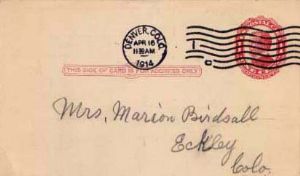 DENVER, COLO.
APR 16
11 30 AM
1914
THIS SIDE OF CARD IS FOR ADDRESS ONLY
Mrs. Marion Birdsall
Eckley
Colo.